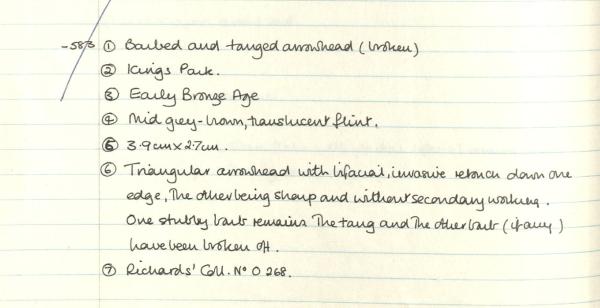 -583 ① Barbed and tanged arrowhead (broken)
② Kings Park.
③ Early Bronze Age
④ Mid grey-brown, translucent flint.
⑤ 3.9cm x 2.7cm.
⑥ Triangular arrowhead with bifacial, invasive retouch down one
edge, The other being sharp and without secondary working.
One stubby barb remains The tang and The other barb (if any)
have been broken off.
⑦ Richards' Coll. Nº O 268.